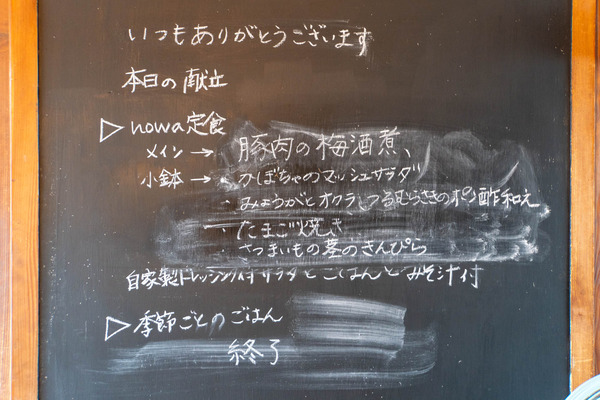 いつもありがとうございます
本日の献立
▷ nowa定食
メイン → 豚肉の梅酒煮、
小鉢 → ・かぼちゃのマッシュサラダ
・みょうがとオクラ、つるむらさきのポン酢和え
・たまご焼き
・さつまいもの茎のきんぴら
自家製ドレッシング付サラダとごはんとみそ汁付
▷ 季節ごとのごはん
終了